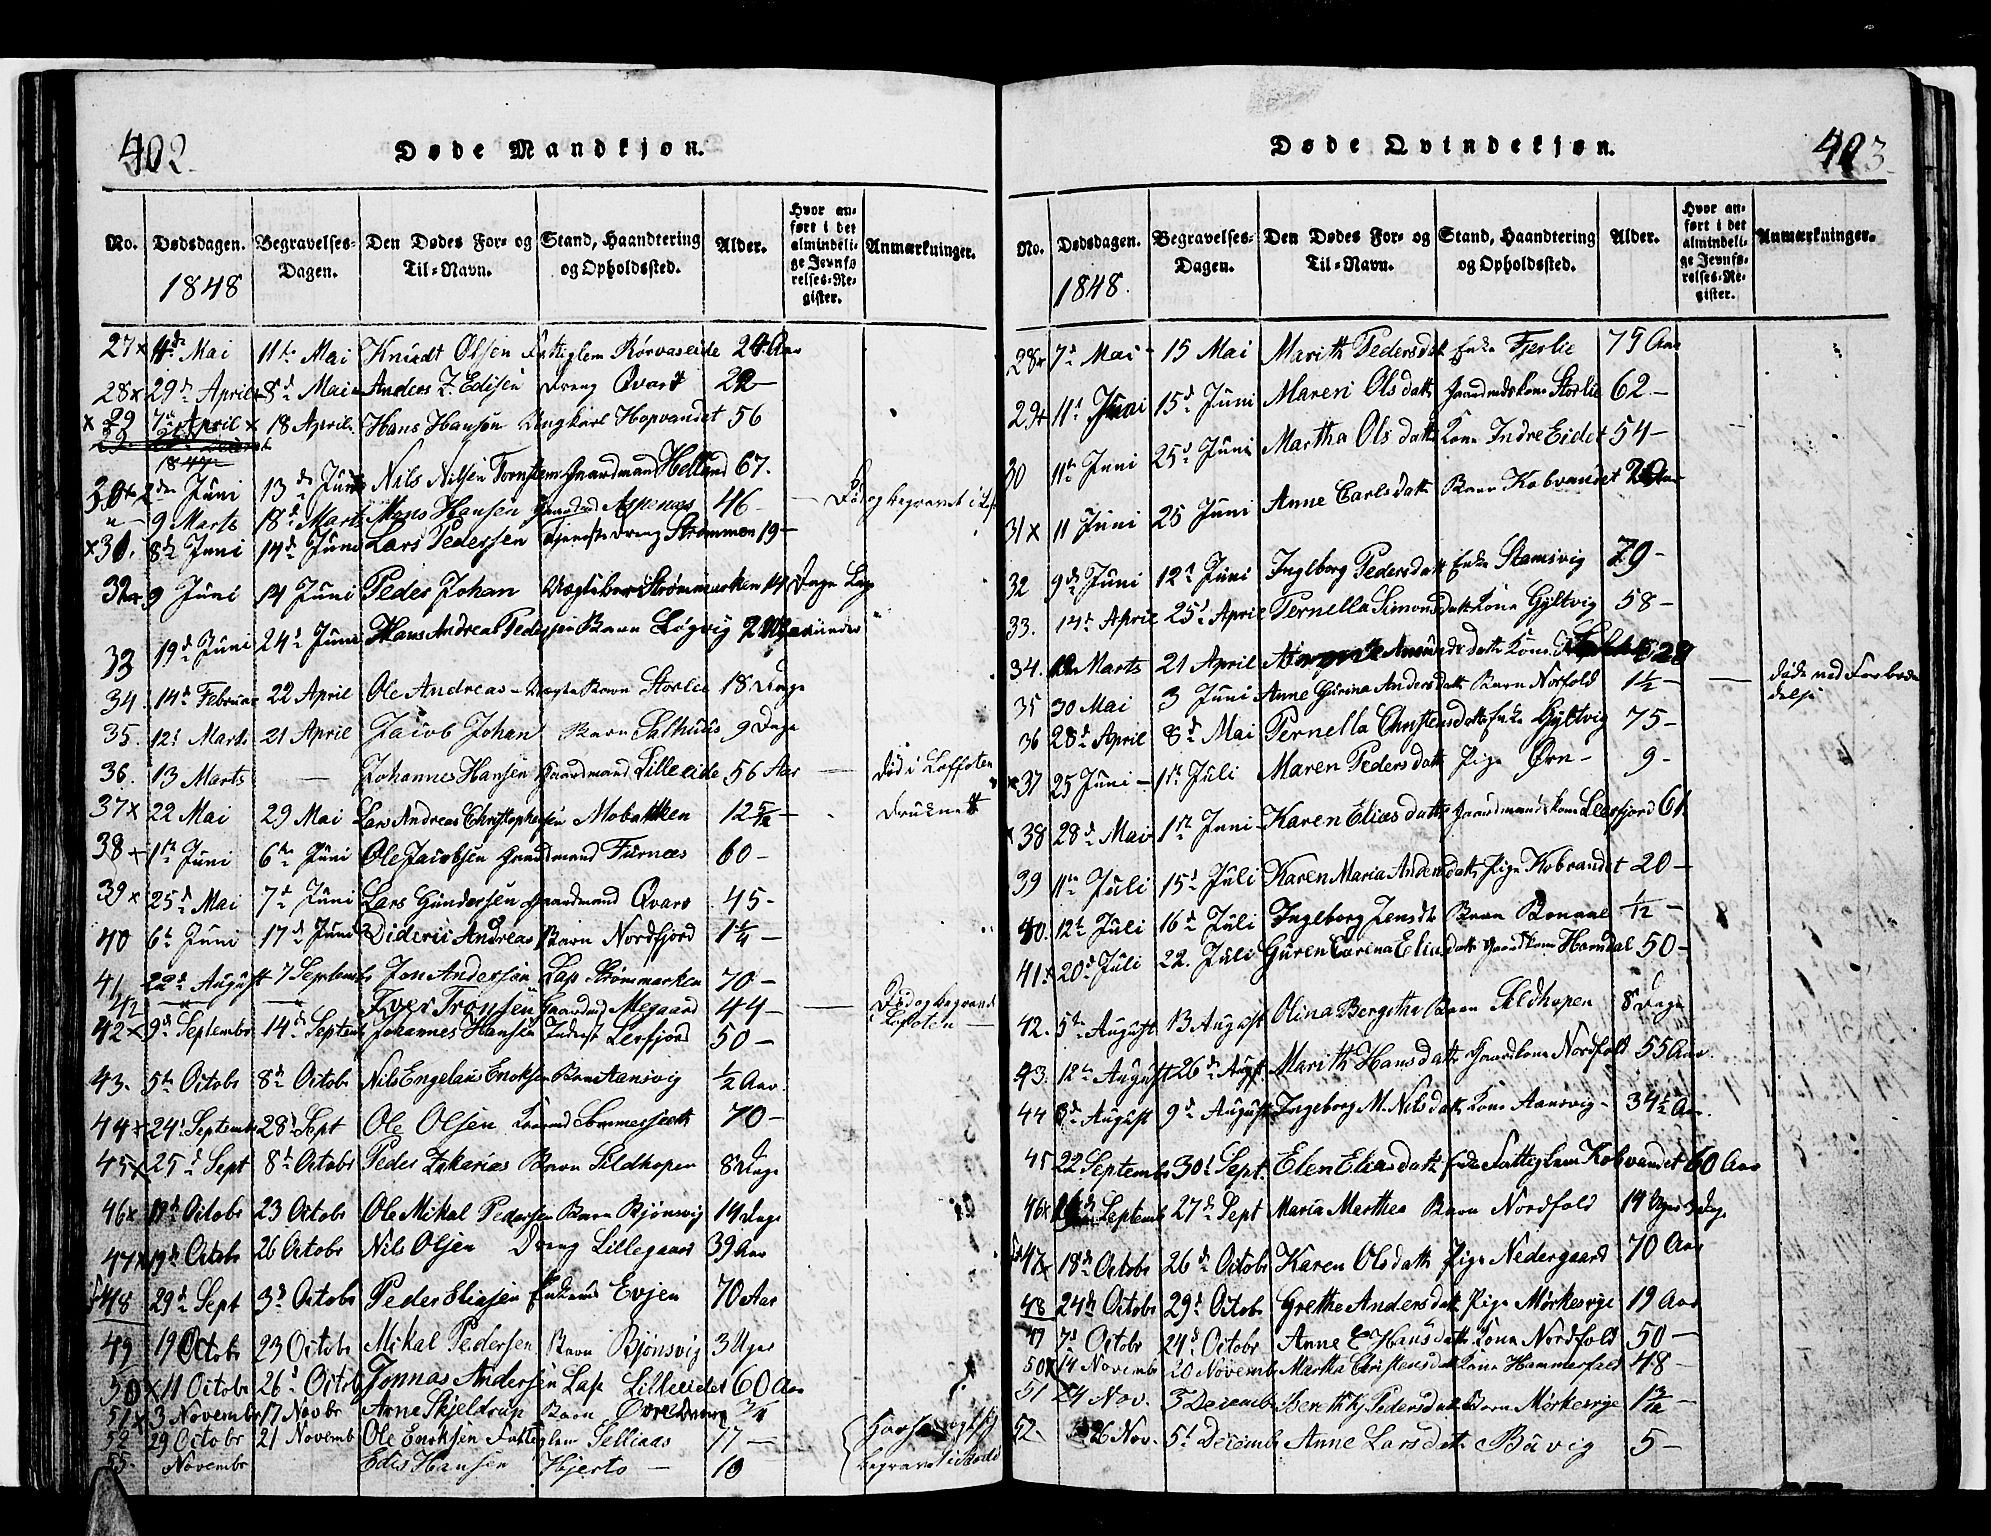 402.
Døde Mandkjøn.
No. Dødsdagen. Begravelses-Dagen. Den Dødes For- og Til-Navn. Stand, Haandtering og Opholdssted. Alder. Hvor anført i det almindelige Jevnførelses-Register. Anmærkninger.
1848
27 x 4de Mai 11te Mai Knudt Olsen Fattiglem Rørvaseide 24 Aar
28 x 29d April 8d Mai Anders Z. Edisen Dreng Qvarv 22 —
x 29 7d April x 18 April. Hans Hansen Ungkarl Hopvandet 56
1847
30 x 2den Juni 13de Juni Nils Nilsen Gaardmand Helland 67.
" 9 Marts 18d Marts Mons Hansen Gaardmd Aspenæs 46 — Død og begravet i Lof
x 31. 8de Juni 14d Juni Lars Pedersen Tjenestedreng Strømmen 19 —
32 9 Juni 14 Juni Peder Johan Uægte barn Strømmarken 14 Dage Lap
33 19d Juni 24d Juni Hans Andreas Pedersen Barn Løgvig
34. 14d Februar 22 April Ole Andreas — Uægte Barn Storlie 18 Dage
35. 12t Marts 21 April Jacob Johan Barn Salhuus 9 Dage
36. 13 Marts — Johannes Hansen Gaardmand Lilleeide 56 Aar — død i Loffoten
37 x 22 Mai 29 Mai Lars Andreas Christophersen Mobakken 12 5/12 — druknet
38 x 1te Juni 6te Juni Ole Jacobsen Gaardmand Furnæs 60 —
39 x 25d Mai 7d Juni Lars Gundersen Gaardmand Qvarv 45 —
40 6t Juni 17d Juni Dideric Andreas Barn Nordfjord 1 1/4 —
41 22d August 7 Septembr Jon Andersen Lap Strømmarken 70 —
42 " " Iver Tronsen Gaardmd Megaard 44 — Død og begravet i Lofoten —
42 x 9d Septembr 14d Septemb Johannes Hansen Inderst Lerfjord 50 —
43. 5te Octobr 8d Octobr Nils Engelaus Enoksen Barn Aansvig 1/2 Aar.
44 x 24d Septembr 28d Sept Ole Olsen Sommerseth 70 —
45 x 25d Sept 8d Octobr Peder Zakarias Barn Sildhopen 8 Dage
46 x 19d Octobr 23 Octobr Ole Mikal Pedersen Barn Bjønsvig 14 Dage
47 x 19d Octobr 26 Octobr Nils Olsen Dreng Lillegaard 39 Aar
48 29d Sept 3d Octobr Peder Eliasen Enkemd Evjen 70 Aar
49 19 Octobr 23 Octobr Mikal Pedersen Barn Bjønsvig 3 Uger
50 x 11 Octobr 26d Octobr Jonnas Andersen Lap Lilleeidet 60 Aar
51 x 3 Novembr 17 Novbr Arne Skjeldrup Barn
52 29 Octobr 21 Novemb Ole Enoksen Fattiglem Selliaas 77 —
53. Novembr Edis Hansen Hjerto — 10 begravet i Bodø
403
Døde Qvindekjøn.
No. Dødsdagen. Begravelses-Dagen. Den Dødes For- og Til-Navn. Stand, Haandtering og Opholdssted. Alder. Hvor anført i det almindelige Jevnførelses-Register. Anmærkninger.
1848.
28 x 7d Mai 15 Mai Marith Pedersdatt Enke Fjerlie 79 Aar
29 x 11t Juni 15d Juni Maren Olsdatt Gaardmdskone Storlie 62 —
30 11te Juni 25d Juni Martha Olsdatt Kone Indre Eidet 54 —
31 x 11 Juni 25 Juni Anne Carlsdatt Barn Kobvandet
32 9de Juni 12t Juni Ingeborg Pedersdatt Enke Stamsvig 79 —
33. 14d April 25d April Pernella Simonsdatt Kone Gyltvig 58 —
34. Marts 21 April Amundsdatt Kone 28
35 30 Mai 3 Juni Anne Gurina Andersdatt Barn Norfold 1 1/2 — — døde ved Forbrædelse
36 28d April 8d Mai Pernella Christensdatt Enke Gyltvig 75 —
x 37 25 Juni — 1te Juli Maren Pedersdatt Pige Ørn — 9 —
x 38 28d Mai 1te Juni Karen Eliasdatt Gaardmandskone Leerfjord 61
39 11te Juli 15d Juli Karen Maria Andersdatt Pige Kobvandet 20 —
40. 12te Juli 16d Juli Ingeborg Jensdt Barn Bonaae 1/12 —
41 x 20d Juli 22. Juli Guren Carina Eliasdatt Gaardkone Hamdal 50 —
42. 5te August 13 August Olina Bergitha Barn Sildhopen 8 Dage
43. 12te August 26de Augst. Marith Hansdatt Gaardkone Nordfold 55 Aar.
44 3d August 9d August Ingeborg M. Nilsdatt Kone Aansvig — 34 1/2 Aar.
45 22 Septembr 30t Sept. Elen Eliasdatt Enke Fattiglem Kobvandet 60 Aar
46 x Septemb 27de Sept Maria Marthea Barn Nordfold 14 Uger 3 Dage
47 x 18de Octobr 26de Octobr Karen Olsdatt Pige Nedergaard 70 Aar
48 24de Octobr 29d Octobr Grethe Andersdatt Pige Mørkesvig 19 Aar
49 7d Octobr 24d Octobr Anne E Hansdatt Kone Nordfold 50 —
50 x 14 Novembr 20 Novemb Martha Christensdatt Kone Hammerfald 48 —
51 24 Nov. 3 Decemb Pedersdatt Barn Mørkesvig
52. 26 Nov. 5t Decemb Anne Larsdatt Bävig 5 —